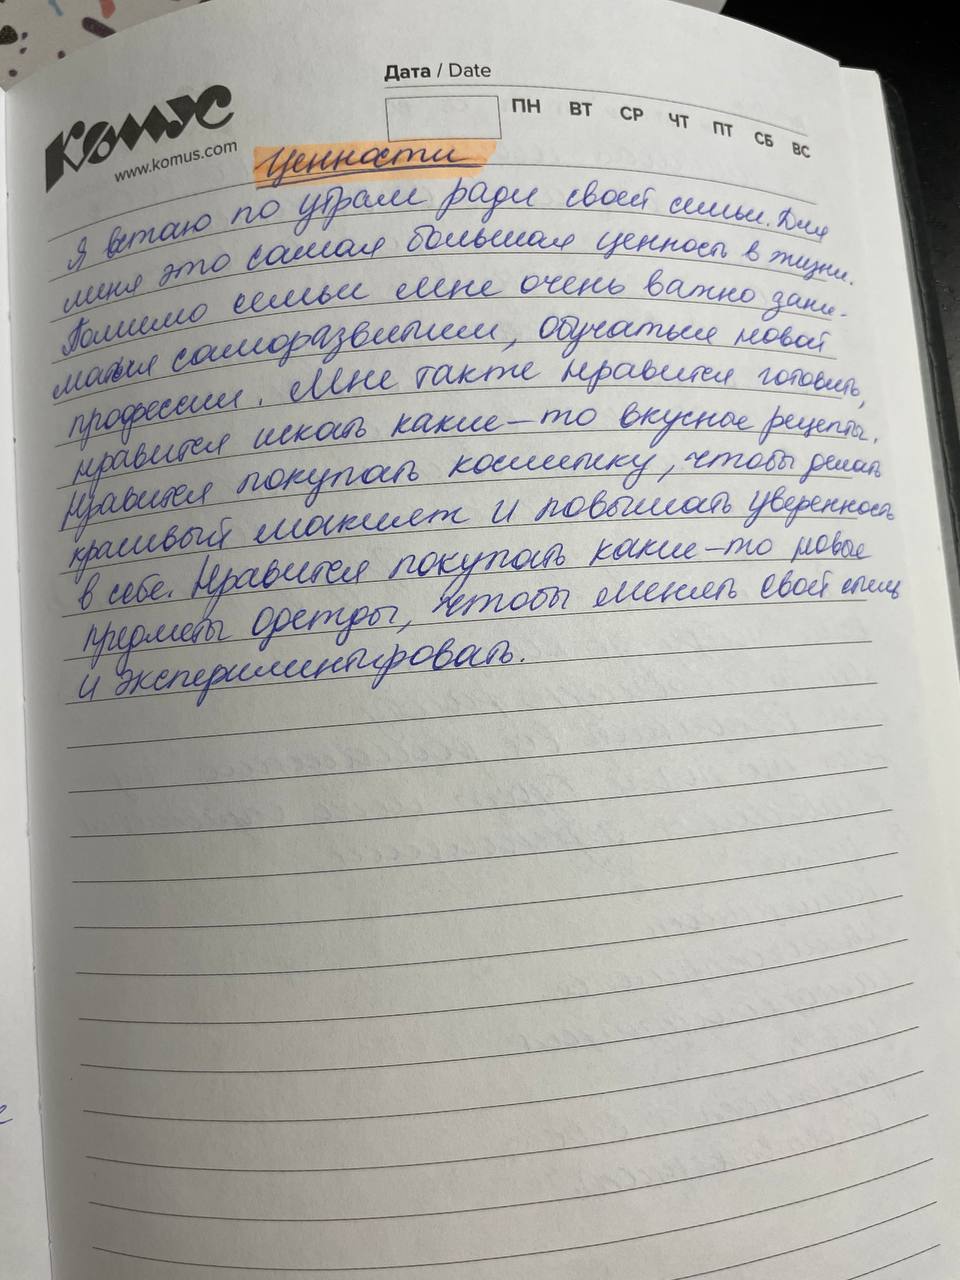 Дата / Date
ПН ВТ СР ЧТ ПТ СБ ВС
Комус
www.komus.com
Ценности
Я встаю по утрам ради своей семьи. Для
меня это самая большая ценность в жизни.
Помимо семьи мне очень важно зани-
маться саморазвитием, обучаться новой
профессии. Мне также нравится готовить,
нравится искать какие-то вкусные рецепты.
Нравится покупать косметику, чтобы делать
красивый макияж и повышать уверенность
в себе. Нравится покупать какие-то новые
предметы одежды, чтобы менять свой стиль
и экспериментировать.